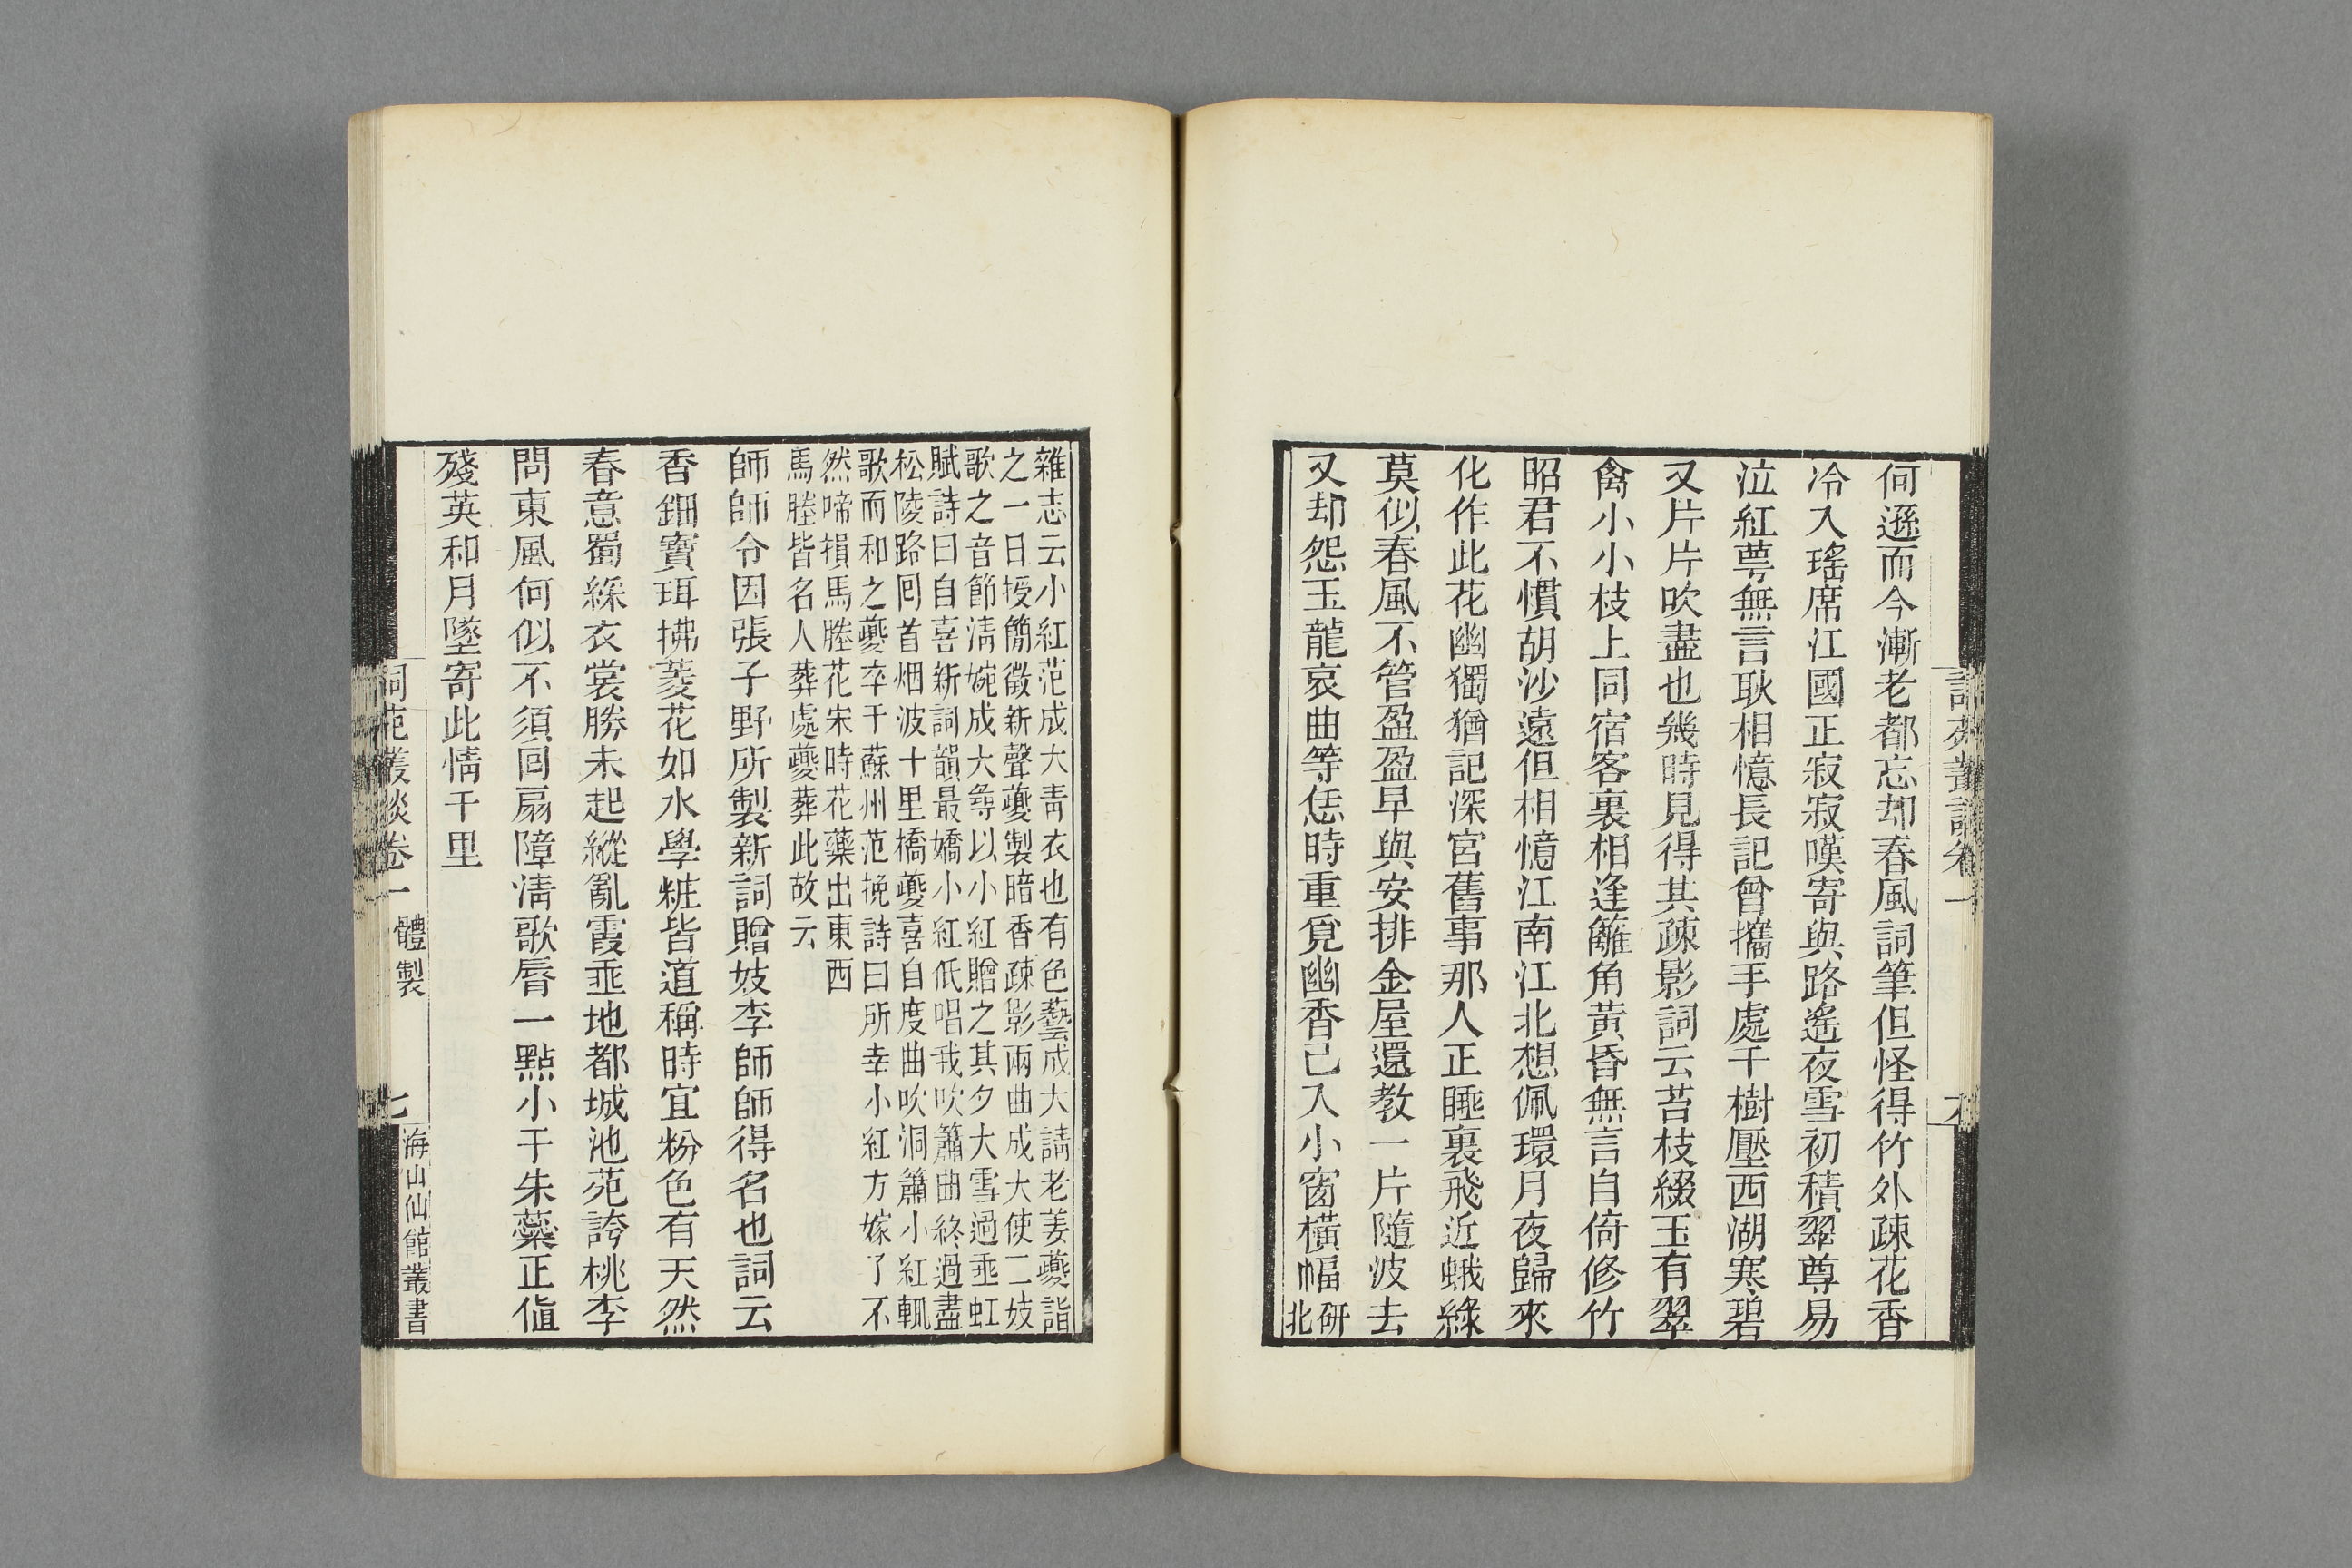 何遜而今漸老都忘却春風詞筆但怪得竹外疎花香
冷入瑤席江國正寂寂嘆寄與路遙夜雪初積翠尊易
泣紅萼無言耿相憶長記曾攜手處千樹壓西湖寒碧
又片片吹盡也幾時見得其疎影詞云苔枝綴玉有翠
禽小小枝上同宿客裏相逢籬角黃昏無言自倚修竹
昭君不慣胡沙遠但相憶江南江北想佩環月夜歸來
化作此花幽獨猶記深宮舊事那人正睡裏飛近蛾綠
莫似春風不管盈盈早與安排金屋還教一片隨波去
又却怨玉龍哀曲等恁時重覓幽香已入小窗橫幅
研
北
雜志云小紅范成大青衣也有色藝成大請老姜夔詣
之一日授簡徵新聲夔製暗香疎影兩曲成大使二妓
歌之音節清婉成大尋以小紅贈之其夕大雪過垂虹
賦詩曰自喜新詞韻最嬌小紅低唱我吹簫曲終過盡
松陵路回首烟波十里橋夔喜自度曲吹洞簫小紅輒
歌而和之夔卒于蘇州范挽詩曰所幸小紅方嫁了不
然啼損馬塍花宋時花藥出東西
馬塍皆名人葬處夔葬此故云
師師令因張子野所製新詞贈妓李師師得名也詞云
香鈿寶珥拂菱花如水學粧皆道稱時宜粉色有天然
春意蜀綵衣裳勝未起縱亂霞垂地都城池苑誇桃李
問東風何似不須回扇障清歌脣一點小于朱蘂正値
殘英和月墜寄此情千里
詞苑叢談卷一
體製
七
海山仙館叢書